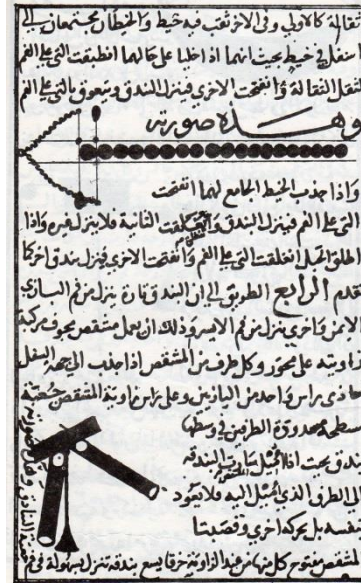 ثقالة كالاولى وفى الاخر ثقب فيه خيط والخيطان يجتمعان الى
اسفل فى خيط بحيث انهما اذا خليا على حالهما انطبقت التى على الفم
لثقل الثقالة وانفتحت الاخرى فينزل البندق ويتعوق بالتى على الفم
وهذه صورته
واذا جذب الخيط الجامع لهما انفتحت
التى على الفم فينزل البندق وانغلقت الثانية فلا ينزل غيره واذا
اطلق الحبل انغلقت التى على الفم وانفتحت الاخرى فينزل بندق اخر كما
تقدم الرابع الطريق الى ان البندق تارة ينزل من فم البازى
الايمن واخرى ينزل من فم الايسر وذلك ان يعمل مشقص مجوف مركبة
زاويته على محور وكل طرف من المشقص اذا جذب الى جهة السفل
حاذى براس واحد من البازيين وعلى راس زاوية المشقص
سطحة محدودة الطرفين فى وسطها
بندق بحيث اذا
الى الطرف الذى اميل اليه فلا تعود
بنفسه بل بحركة اخرى وقصبتا
المشقص مفتوح كل منهما من عند الزاوية خرقا يسع بندقة تنزل بسهولة فى